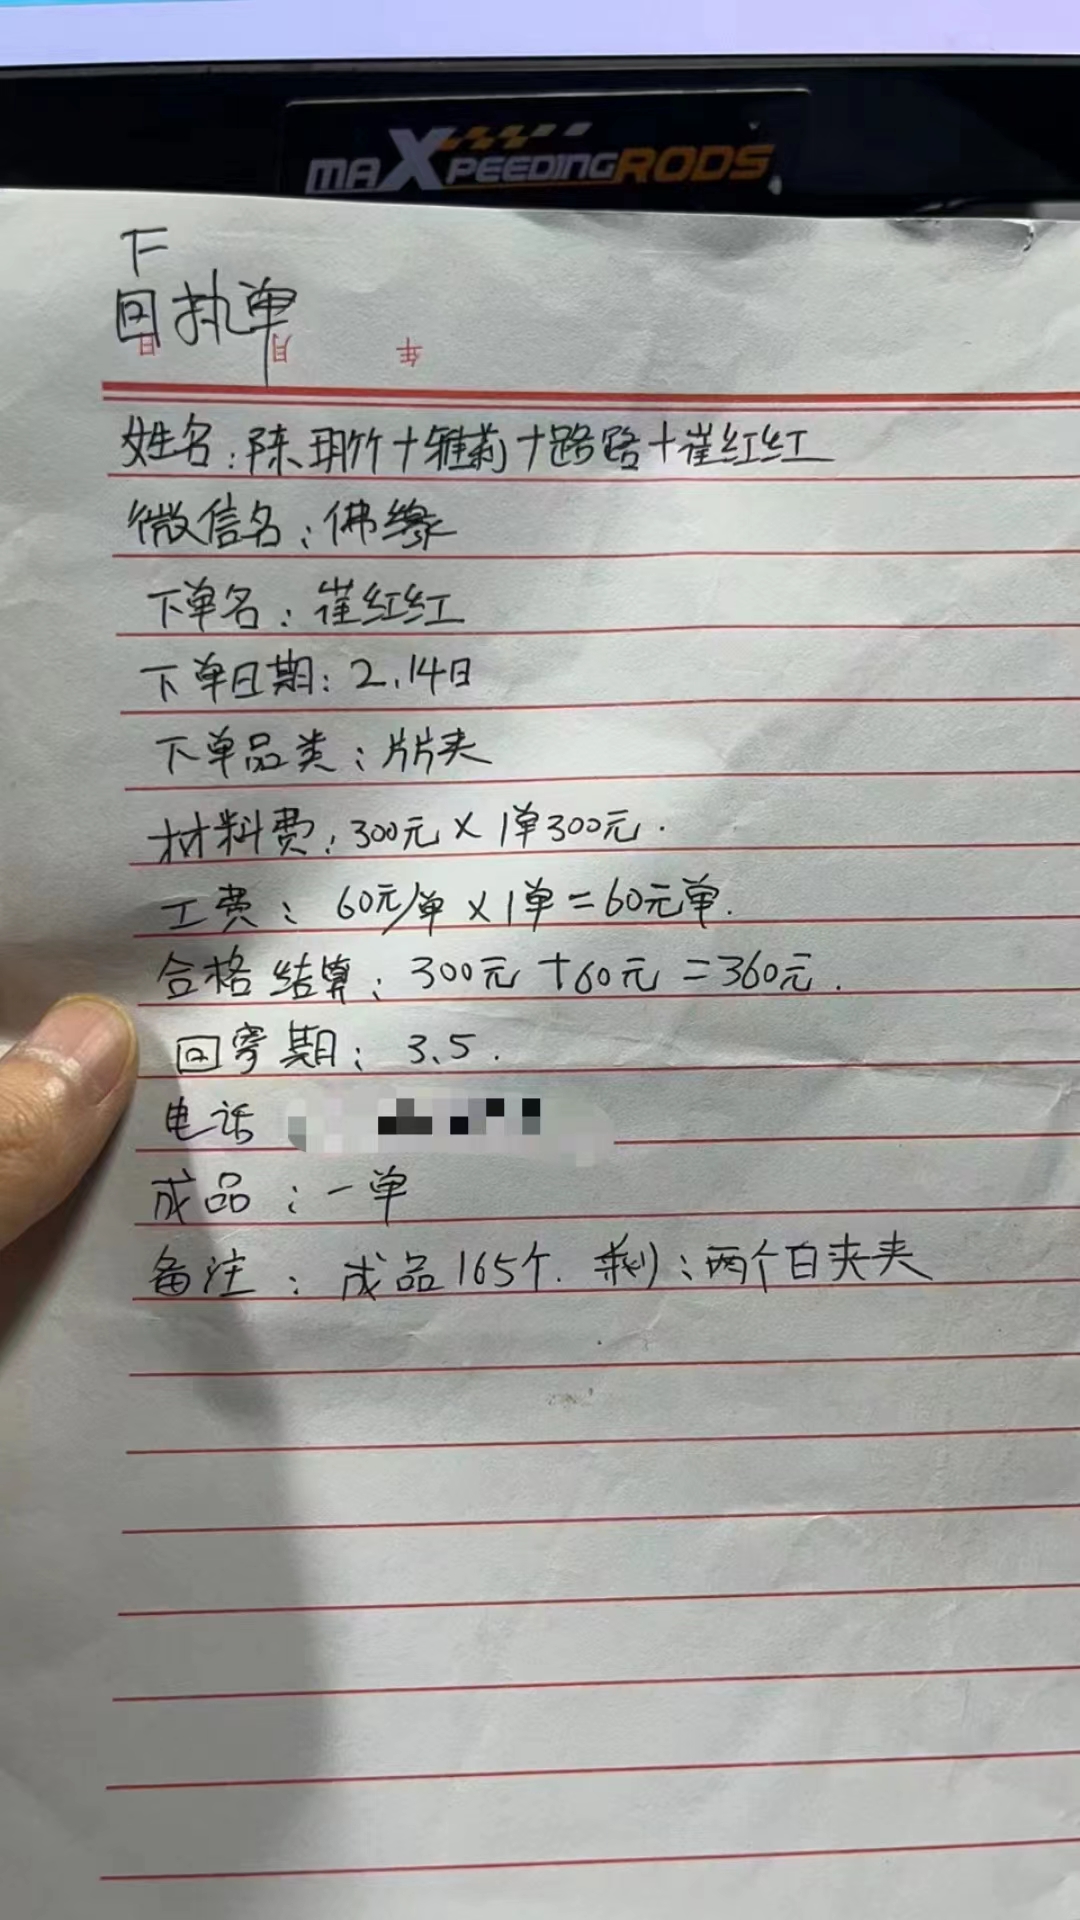 MAXPEEDINGRODS
下
回执单
日 月 年
姓名:陈玥竹+雅莉+路路+崔红红
微信名:佛缘
下单名:崔红红
下单日期:2.14日
下单品类:片片夹
材料费:300元×1单300元.
工费:60元/单×1单=60元单.
合格结算:300元+60元=360元.
回寄期:3.5.
电话
成品:一单
备注:成品165个.剩:两个白夹夹